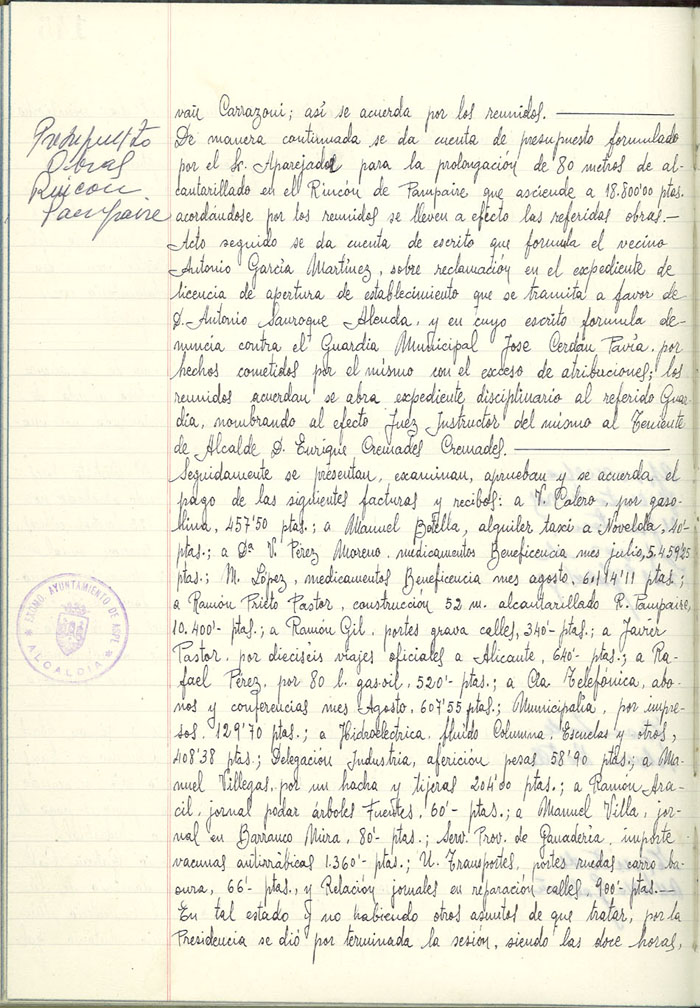 van Carrazoni; así se acuerda por los reunidos.
Presupuesto
Obras
Rincon
Pampaire
De manera continuada se da cuenta de presupuesto formulado
por el Sr. Aparejador para la prolongación de 80 metros de al-
cantarillado en el Rincón de Pampaire que asciende a 18.800'00 ptas.
acordándose por los reunidos se lleven a efecto las referidas obras.—
Acto seguido se da cuenta de escrito que formula el vecino
Antonio García Martínez, sobre reclamación en el expediente de
licencia de apertura de establecimiento que se tramita a favor de
D. Antonio Sauroque Alenda, y en cuyo escrito formula de-
nuncia contra el Guardia Municipal Jose Cerdán Pavía. por
hechos cometidos por el mismo con el exceso de atribuciones; los
reunidos acuerdan se abra expediente disciplinario al referido Guar-
dia, nombrando al efecto Juez Instructor del mismo al Teniente
de Alcalde D. Enrique Cremades Cremades.
Seguidamente se presentan, examinan, aprueban y se acuerda el
pago de las siguientes facturas y recibos: a V. Calero, por gaso-
lina, 457'50 ptas.; a Manuel Botella, alquiler taxis a Novelda, 40'-
ptas.; a Dª V. Pérez Moreno. medicamentos Beneficencia mes julio, 5.459'25
ptas.; M. López, medicamentos Beneficencia mes agosto, 6.114'11 ptas.;
a Ramón Prieto Pastor, construcción 52 m. alcantarillado R. Pampaire,
10.400'- ptas.; a Ramón Gil. portes grava calles, 340'- ptas.; a Javier
Pastor, por dieciséis viajes oficiales a Alicante, 640'- ptas.; a Ra-
fael Pérez, por 80 l. gas-oil, 520'- ptas.; a Cía Telefónica, abo-
nos y conferencias mes Agosto, 607'55 ptas.; Municipalia, por impre-
sos. 129'70 ptas.; a Hidroelectrica. fluido Columna. Escuelas y otros,
408'38 ptas.; Delegación Industria, aferición pesas 58'90 ptas.; a Ma-
nuel Villegas, por un hacha y tijeras 204'00 ptas.; a Ramón Ara-
cil, jornal podar árboles Fuentes, 60'- ptas.; a Manuel Villa, jor-
nal en Barranco Mira, 80'- ptas.; Serv. Prov. de Ganadería. importe
vacunas antirrábicas 1.360'- ptas.; U. Transportes, portes ruedas carro ba-
sura, 66'- ptas., y Relación jornales en reparación calles, 900'- ptas.—
En tal estado y no habiendo otros asuntos de que tratar, por la
Presidencia se dió por terminada la sesión, siendo las doce horas,
EXCMO. AYUNTAMIENTO DE ASPE
ALCALDIA